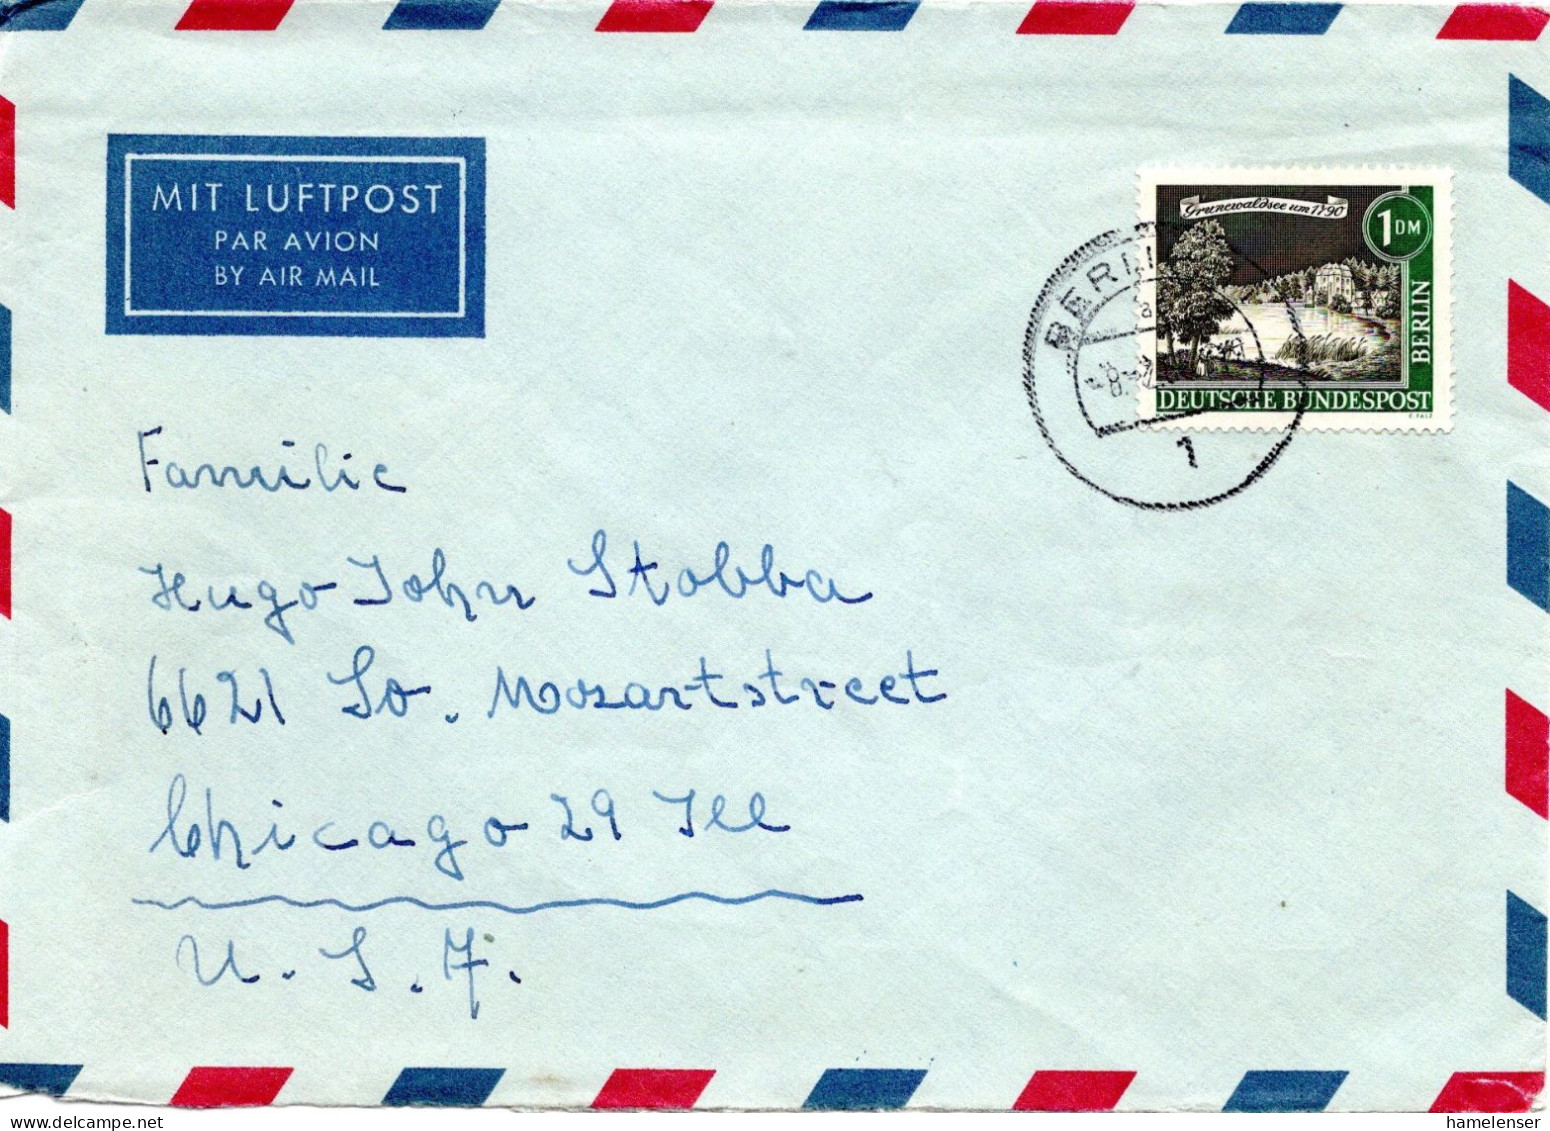 MIT LUFTPOST
PAR AVION
BY AIR MAIL
Grunewaldsee um 1790
1 DM
BERLIN
DEUTSCHE BUNDESPOST
BERLIN
1
Familie
Hugo John Stobba
6621 So. Mozartstreet
Chicago 29 Ill
U. S. A.
hamelenser